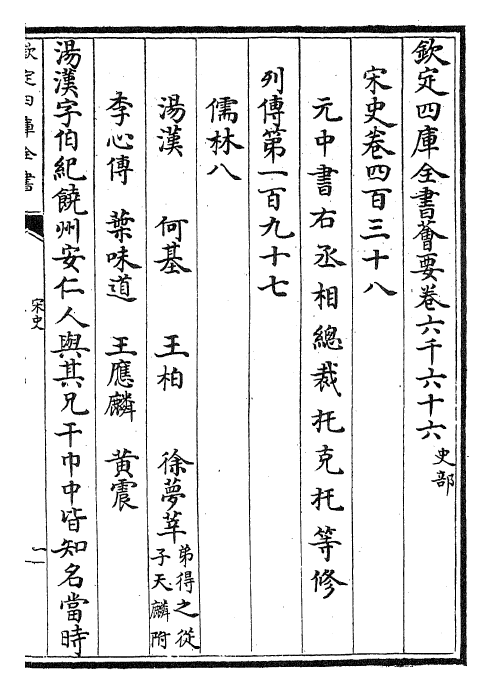 欽定四庫全書薈要卷六千六十六 史部
宋史卷四百三十八
元中書右丞相總裁托克托等修
列傳第一百九十七
儒林八
湯漢 何基 王柏 徐夢莘 弟得之從子天麟附
李心傳 葉味道 王應麟 黃震
湯漢字伯紀饒州安仁人與其兄干巾中皆知名當時
欽定四庫全書
宋史
一